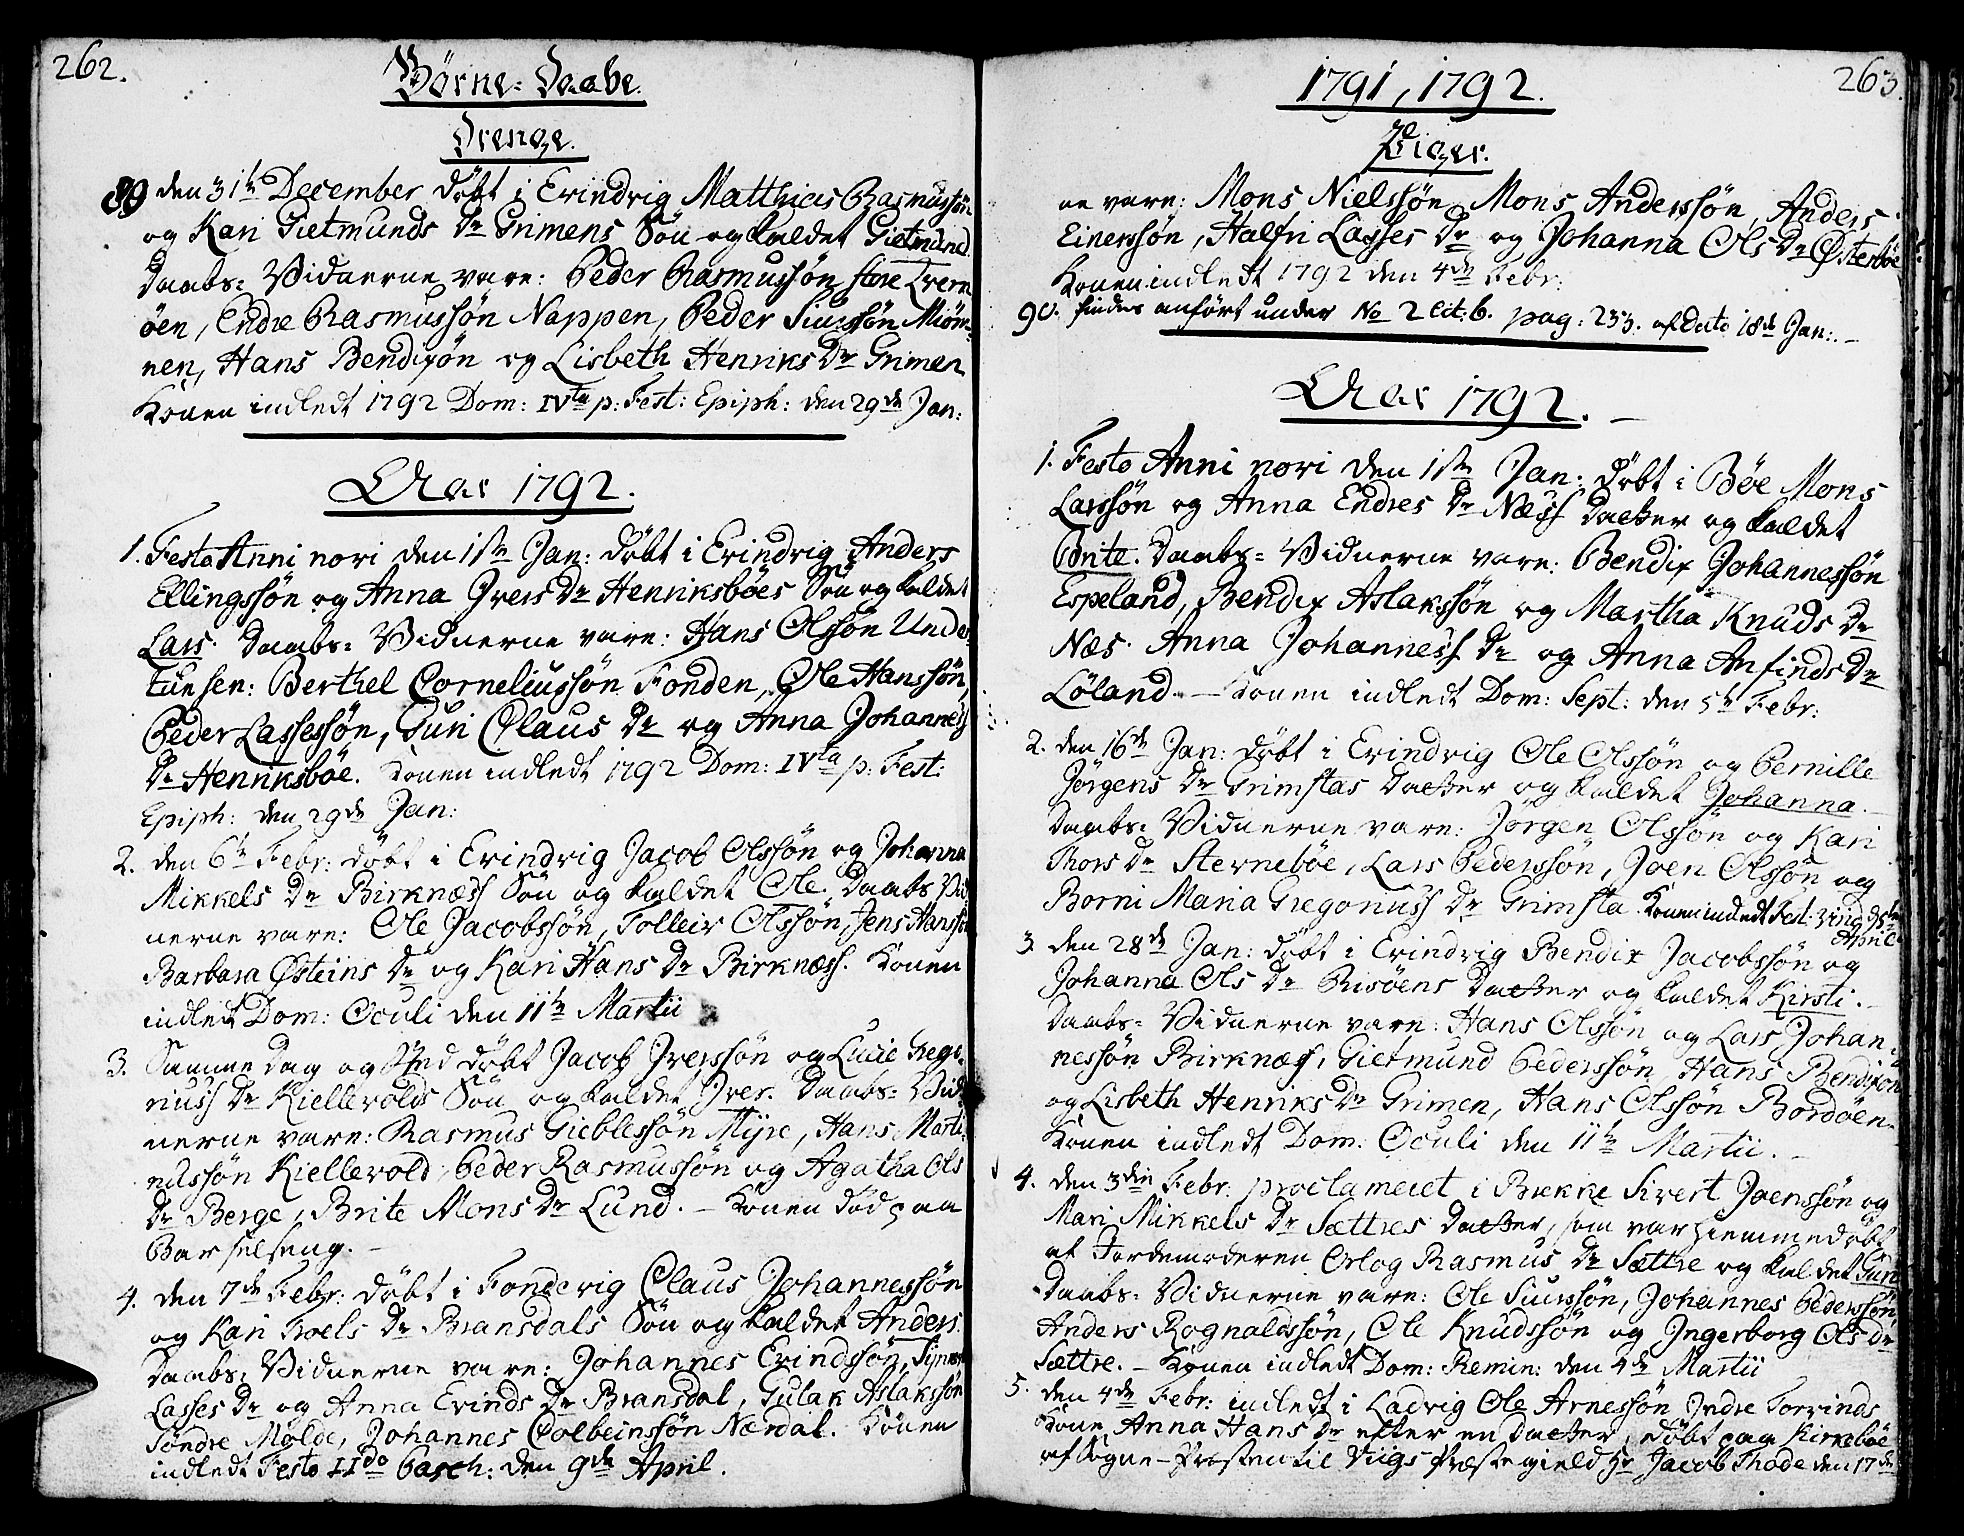 262.
Börne-Daabe.
Drenge.
89 den 31te December döbt i Evindvig Matthias Rasmussön
og Kari Gietmunds Dr Grimens Sön og kaldet Gietmund.
Daabs-Vidnerne vare: Peder Rasmussön store Kvern
öen, Endre Rasmussön Nappen, Peder Siurssön Miöm-
nen, Hans Bendixön og Lisbeth Henriks Dr Grimen
Konen indledt 1792 Dom: IVta p: Fest: Epiph: den 29de Jan:
Aar 1792.
1. Festo Anni novi den 1ste Jan: döbt i Evindvig Anders
Ellingssön og Anna Ivers Dr Henriksböes Sön og kaldet
Lars. Daabs-Vidnerne vare: Hans Olssön Under
tunsen: Berthel Corneliussön Fonden, Ole Hanssön,
Peder Lassessön, Guri Claus Dr og Anna Johanness
Dr Henriksböe. Konen indledt 1792 Dom: IVta p: Fest:
Epiph: den 29de Jan:
2. den 6te Febr: döbt i Evindvig Jacob Olssön og Johanna
Mikkels Dr Birknæss Sön og kaldet Ole. Daabs Vid
nerne vare: Ole Jacobssön, Tolleiv Olssön, Jens Hanssön
Barbara Østeins Dr og Kari Hans Dr Birknæss. Konen
indledt Dom: Oculi den 11te Martii
3. Samme Dag og Sted döbt Jacob Iverssön og Lucie Grego-
nuss Dr Kiellevolds Sön og kaldet Iver. Daabs-Vid
nerne vare: Rasmus Gieblessön Myre, Hans Marti-
nussön Kiellevold, Peder Rasmussön og Agatha Ols
Dr Berge, Brite Mons Dr Lund. – Konen död paa
Barselseng. –
4. den 7de Febr: döbt i Fondevig Claus Johannessön
og Kari Troels Dr Bransdals Sön og kaldet Anders.
Daabs-Vidnerne vare: Johannes Evindssön,
Lasses Dr og Anna Evinds Dr Bransdal, Gulak Aslakssön
Söndre Molde, Johannes Colbeinssön Nærdal. Konen
indledt Festo IIdo Pasch: den 9de April.
263.
1791, 1792.
Piger.
ne vare: Mons Nielssön, Mons Anderssön, Anders
Einerssön, Halfri Lasses Dr og Johanna Ols Dr Østerböe
Konen indledt 1792 den 4de Febr:
90. findes anfört under No 2 Lit: b. pag: 233. af Dato 18de Jan: –
Aar 1792. –
1. Festo Anni novi den 1ste Jan: döbt i Böe Mons
Larssön og Anna Endres Dr Næss Datter og kaldet
Brite. Daabs-Vidnerne vare: Bendix Johannessön
Espeland, Bendix Aslakssön og Martha Knuds Dr
Næs. Anna Johanness Dr og Anna Anfinds Dr
Löland. – Konen indledt Dom: Sept: den 5te Febr:
2. den 16de Jan: döbt i Evindvig Ole Olssön og Pernille
Jörgens Dr Grimstas Datter og kaldet Johanna. –
Daabs-Vidnerne vare: Jörgen Olssön og Kari
Thors Dr Sterneböe, Lars Pederssön, Joen Olssön og
Borni Maria Gregoriuss Dr Grimsta. Konen indledt Fest:
April
3. den 28de Jan: döbt i Evindvig Bendix Jacobssön og
Johanna Ols Dr Risöens Datter og kaldet Kirsti. –
Daabs-Vidnerne vare: Hans Olssön og Lars Johan-
nessön Birknæss, Gietmund Pederssön, Hans Bendixön
og Lisbeth Henriks Dr Grimen, Hans Olssön Bordöen
Konen indledt Dom: Oculi den 11te Martii. –
4. den 3die Febr: proclameret i Brekke Sivert Joenssön og
Mari Mikkels Dr Sættres Datter, som var hiemmedöbt
af Jordemoderen Orlog Rasmus Dr Sættre og kaldet Guri
Daabs-Vidnerne vare: Ole Siurssön, Johannes Pederssön,
Anders Rognaldssön, Ole Knudssön og Ingerborg Ols Dr
Sættre. – Konen indledt Dom: Remin: den 4de Martii
5. den 4de Febr: indledt i Ladvig Ole Arnessön Indre Torvinds
Kone Anna Hans Dr efter en Datter, döbt paa Kirkeböe
af Sogne-Præsten til Viigs Præstegield Hr Jacob Thode den 17de